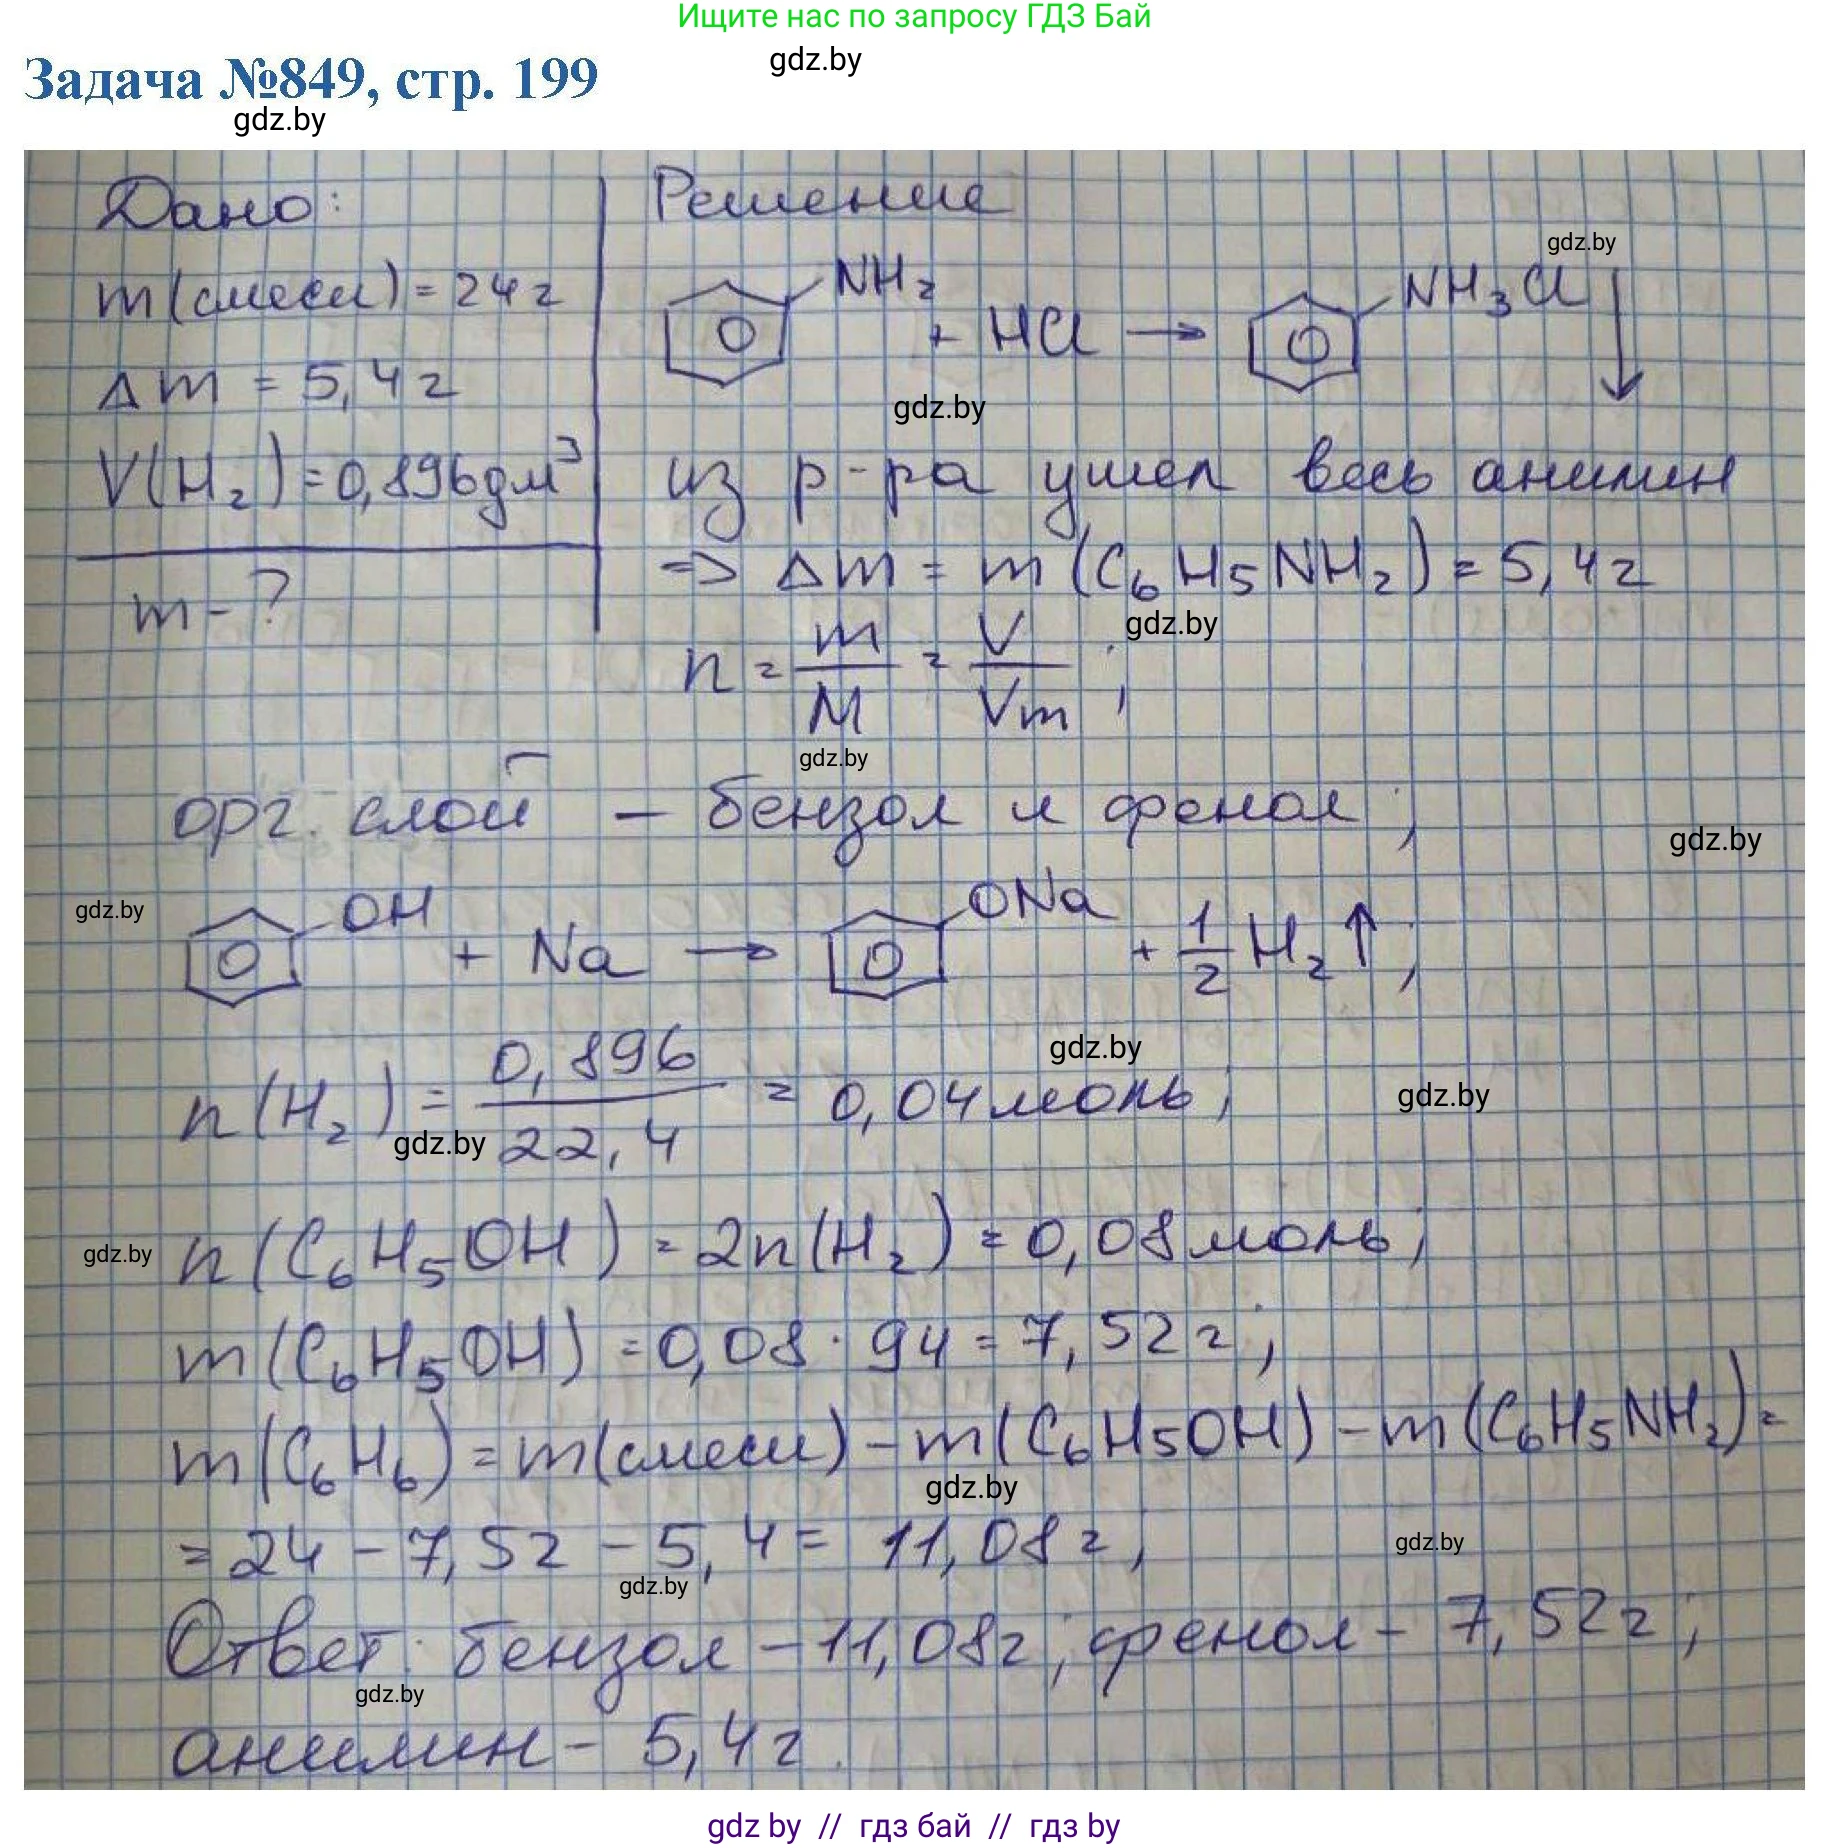 Ищите нас по запросу ГДЗ Бай
gdz.by
Задача №849, стр. 199
gdz.by
Дано:
m(смеси) = 24 г
Δm = 5,4 г
V(H₂) = 0,896 дм³
m - ?
Решение
gdz.by
NH₂ + HCl → NH₃Cl ↓
gdz.by
из р-ра ушел весь анилин
=> Δm = m(C₆H₅NH₂) = 5,4 г
gdz.by
n = m/M = V/Vm ;
gdz.by
орг. слой – бензол и фенол ;
gdz.by
gdz.by
OH + Na → ONa + 1/2 H₂↑ ;
gdz.by
n(H₂) = 0,896/22,4 = 0,04 моль ;
gdz.by
gdz.by
n(C₆H₅OH) = 2n(H₂) = 0,08 моль ;
gdz.by
m(C₆H₅OH) = 0,08 · 94 = 7,52 г ;
m(C₆H₆) = m(смеси) – m(C₆H₅OH) – m(C₆H₅NH₂) =
gdz.by
= 24 – 7,52 – 5,4 = 11,08 г ;
gdz.by
gdz.by
Ответ: бензол – 11,08 г ; фенол – 7,52 г ;
gdz.by
анилин – 5,4 г.
gdz.by // гдз бай // гдз by